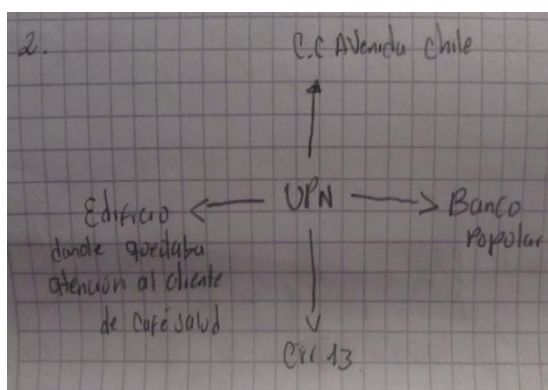 2.
C.C Avenida Chile
UPN
Edificio
donde quedaba
atención al cliente
de café salud
Banco
Popular
Crr 13